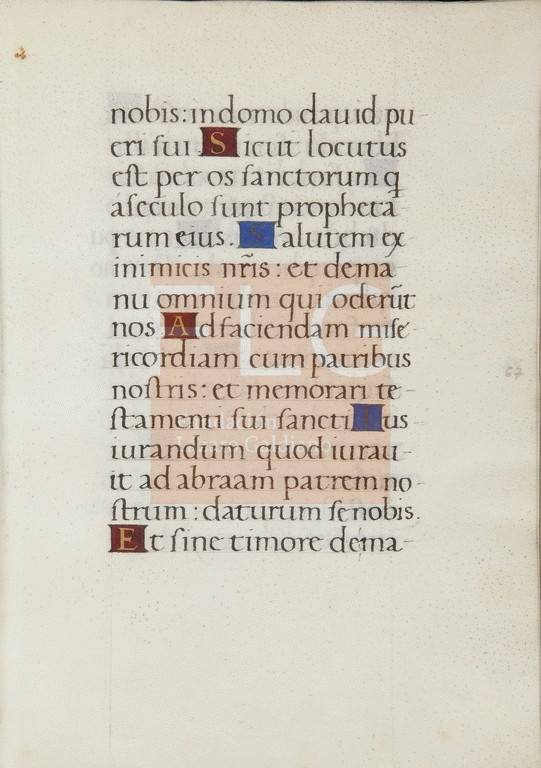 nobis: in domo dauid pu
eri sui. Sicut locutus
est per os sanctorum q
a seculo sunt propheta
rum eius. Salutem ex
inimicis nr̃is: et de ma
nu omnium qui oderũt
nos Ad faciendam mise
ricordiam cum patribus
nostris: et memorari te
stamenti sui sancti Ius
iurandum quod iurau
it ad abraam patrem no
strum: daturum se nobis.
Et sine timore de ma
67